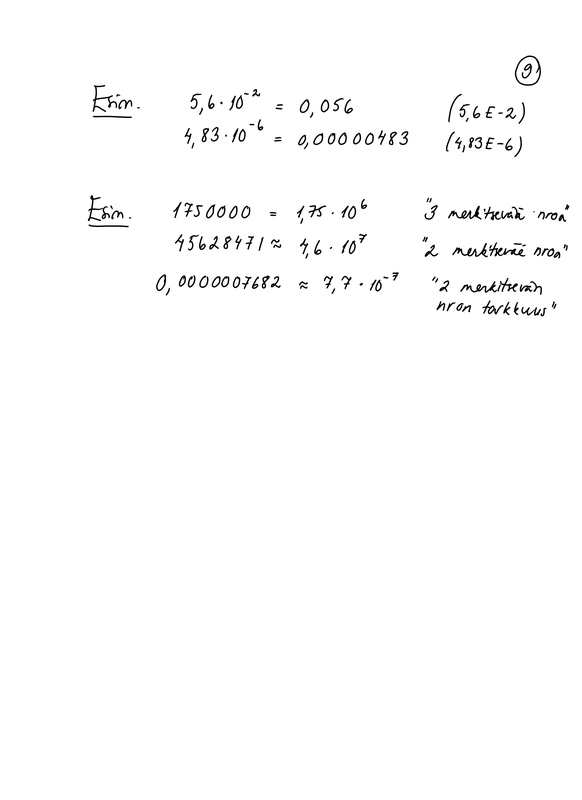 9
Esim. 5,6 · 10⁻² = 0,056 (5,6E-2)
4,83 · 10⁻⁶ = 0,00000483 (4,83E-6)
Esim. 1750000 = 1,75 · 10⁶ "3 merkitsevää nroa"
45628471 ≈ 4,6 · 10⁷ "2 merkitsevää nroa"
0,0000007682 ≈ 7,7 · 10⁻⁷ "2 merkitsevän
nron tarkkuus"